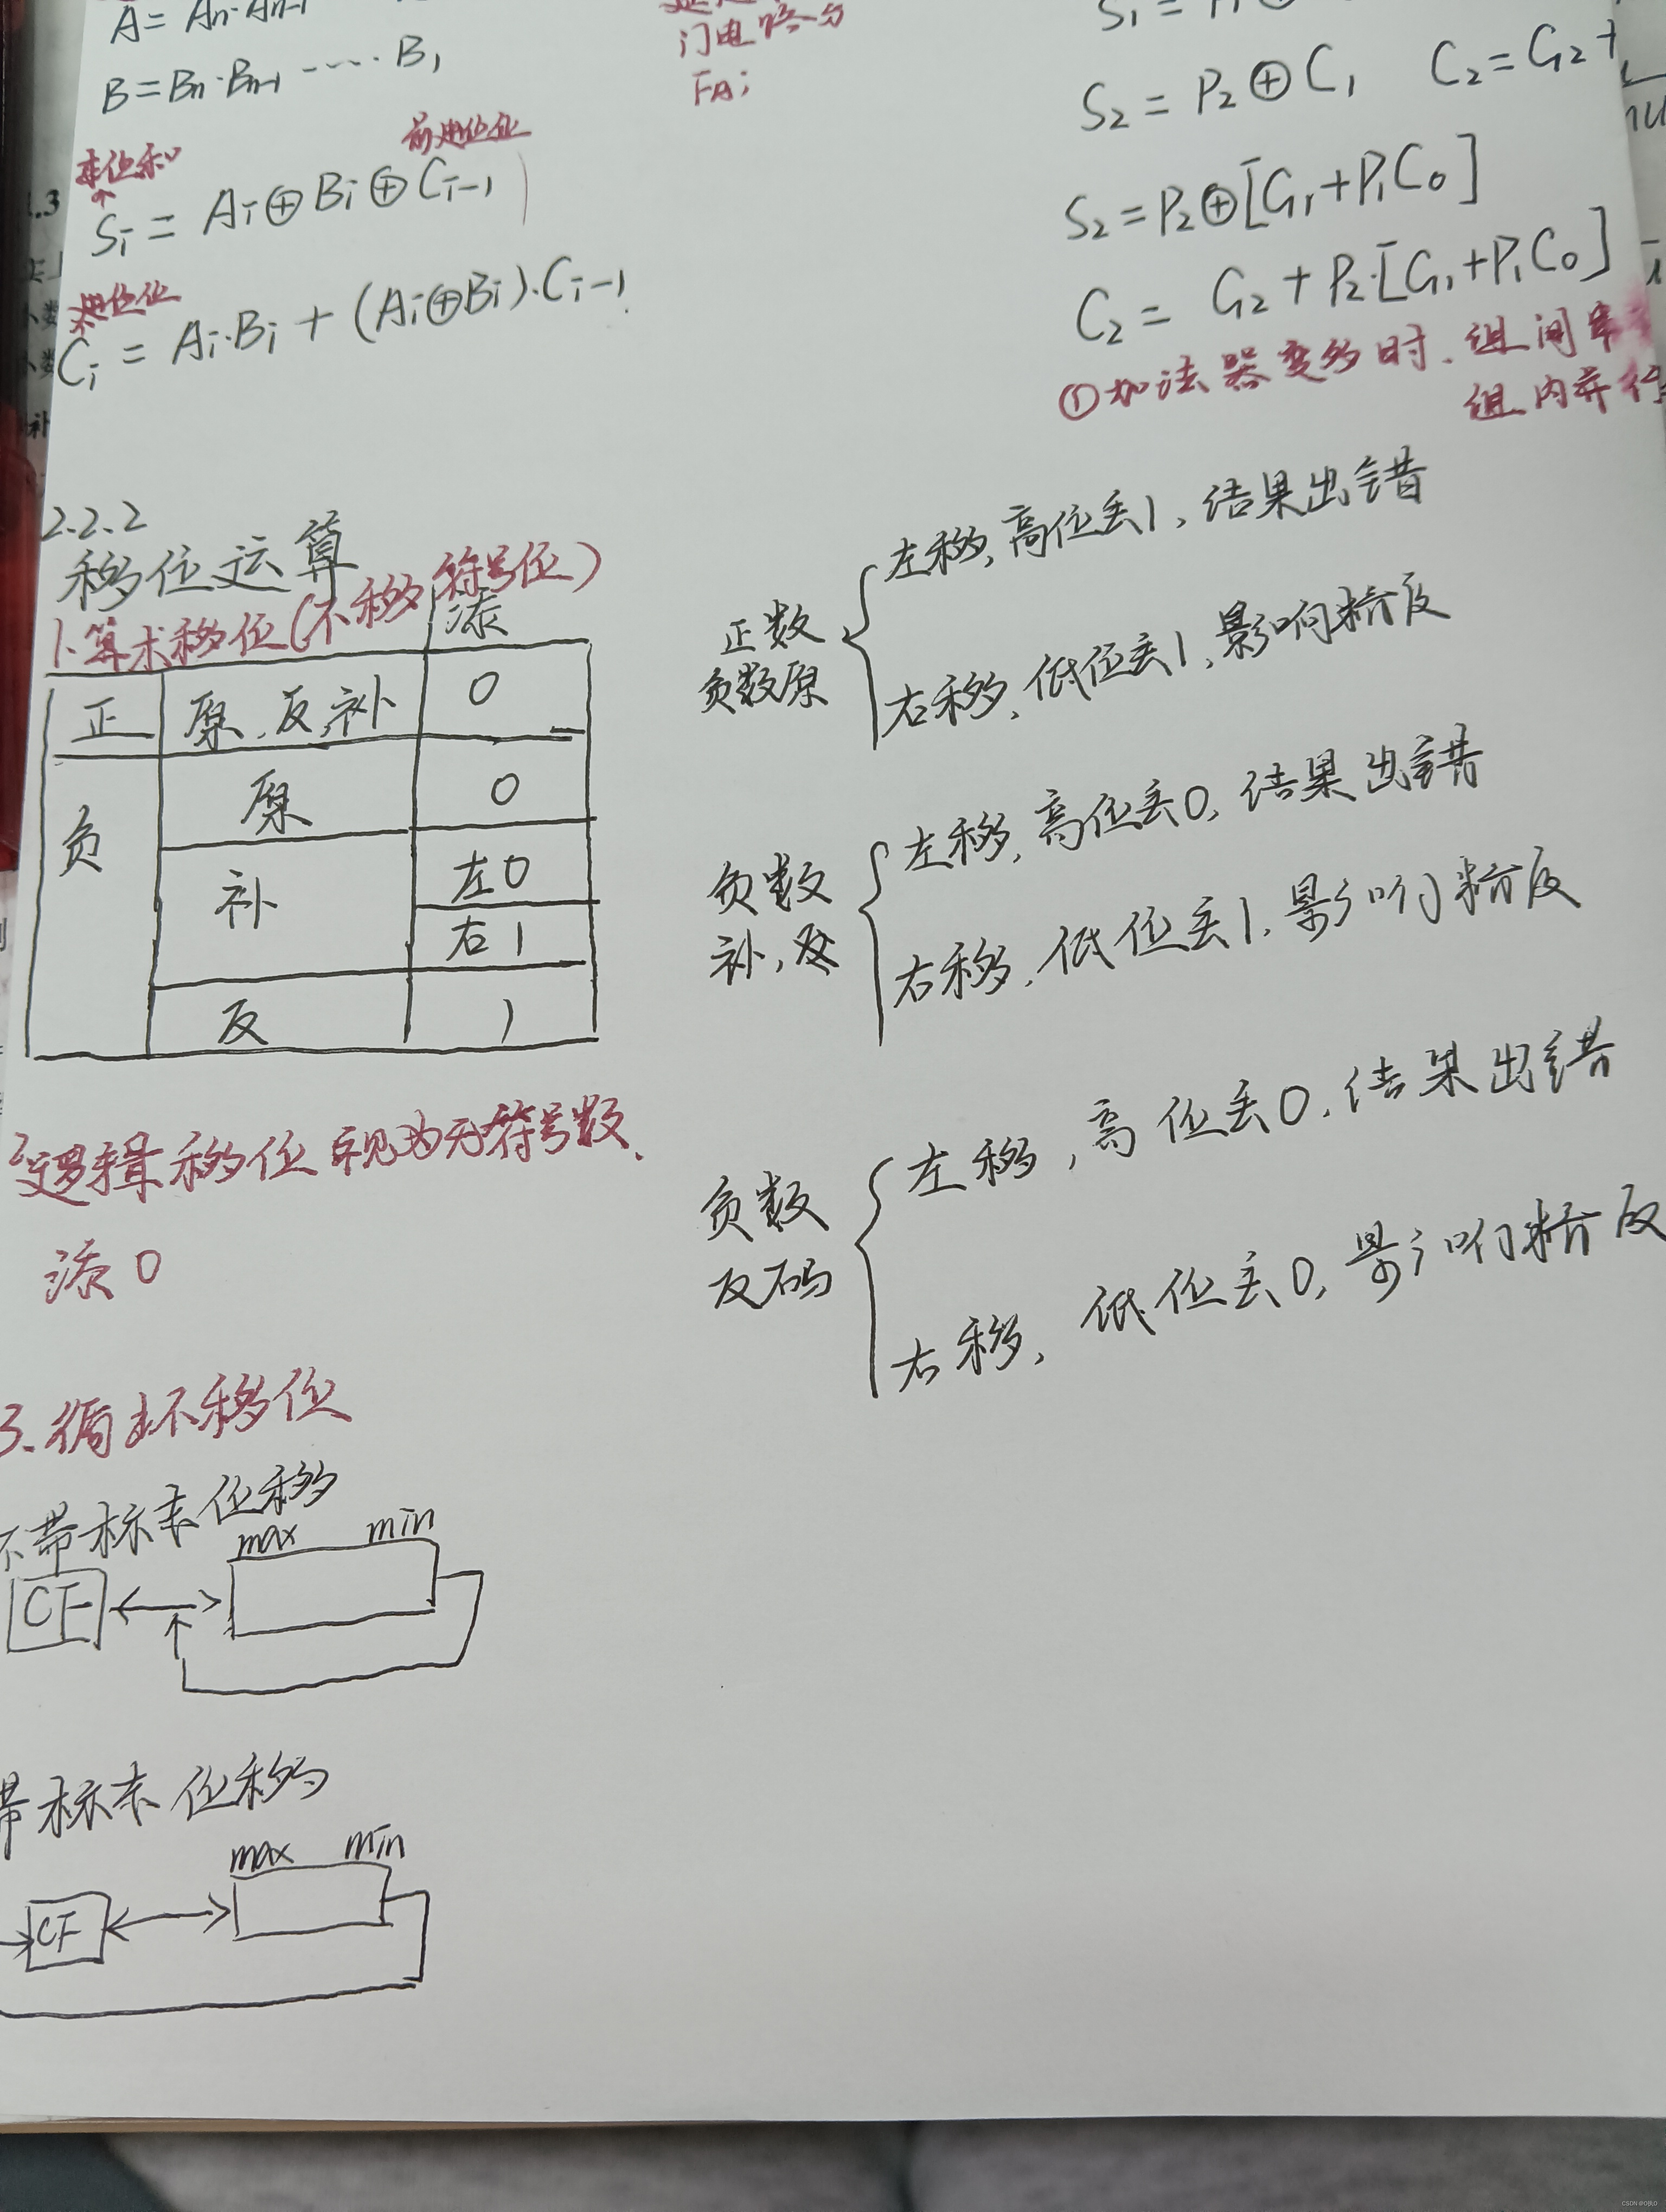 A = An·An-1
B = Bn·Bn-1 ---- B1
本位和
前进位位
Si = Ai⊕Bi⊕Ci-1
进位位
Ci = Ai·Bi + (Ai⊕Bi)·Ci-1
门电路分
FAi
S1 =
S2 = P2⊕C1 C2 = G2 +
S2 = P2⊕[G1+P1C0]
C2 = G2 + P2·[G1+P1C0]
①加法器变多时.组间串
组内并行
2.2.2
移位运算
1.算术移位(不移符号位)
添
正 原,反,补 0
负 原 0
补 左0
右1
反 1
正数
负数原
左移,高位丢1,结果出错
右移,低位丢1,影响精度
负数
补,反
左移,高位丢0,结果出错
右移,低位丢1,影响精度
负数
反码
左移,高位丢0,结果出错
右移,低位丢0,影响精度
2逻辑移位 视为无符号数.
添0
3.循环移位
不带标志位移
max min
CF
带标志位移
max min
CF
CSDN